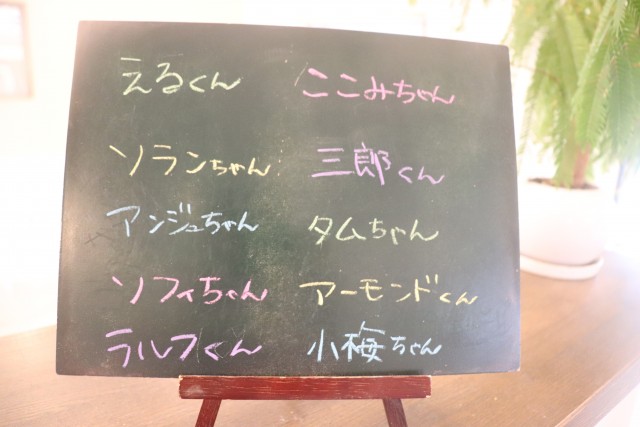 えるくん
ここみちゃん
ソランちゃん
三郎くん
アンジュちゃん
タムちゃん
ソフィちゃん
アーモンドくん
ラルフくん
小梅ちゃん